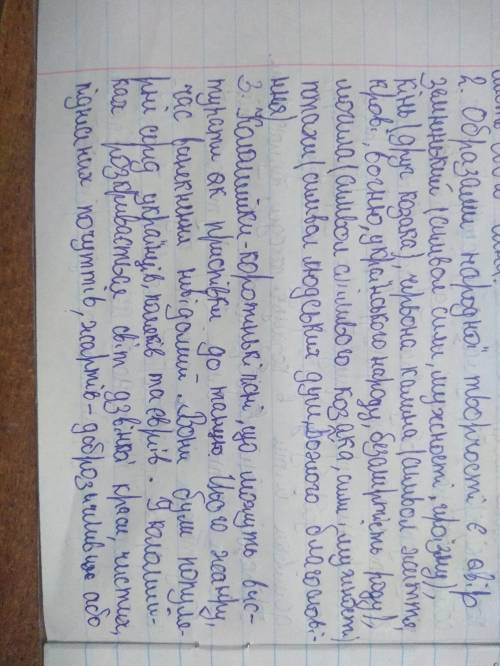 2. Образами народної творчості є явір
зелененький (символ сили, мужності, героїзму),
кінь (друг козака), червона калина (символ життя,
крові, вогню, українського народу, безсмертність роду),
могила (символ сміливого козака, сили, мужності)
птахи (символ людських душ, божого благослові-
ння)
3. Коломийки-коротенькі пісні, що можуть вис-
тупати як приспівки до танцю. Цього жанру,
час виникнення невідомий. Вони були популя-
рні серед українців, поляків та євреїв. У коломий-
ках розкривається світ дзвінкої краси, чистих,
піднесених почуттів, жартів - доброзичливих або